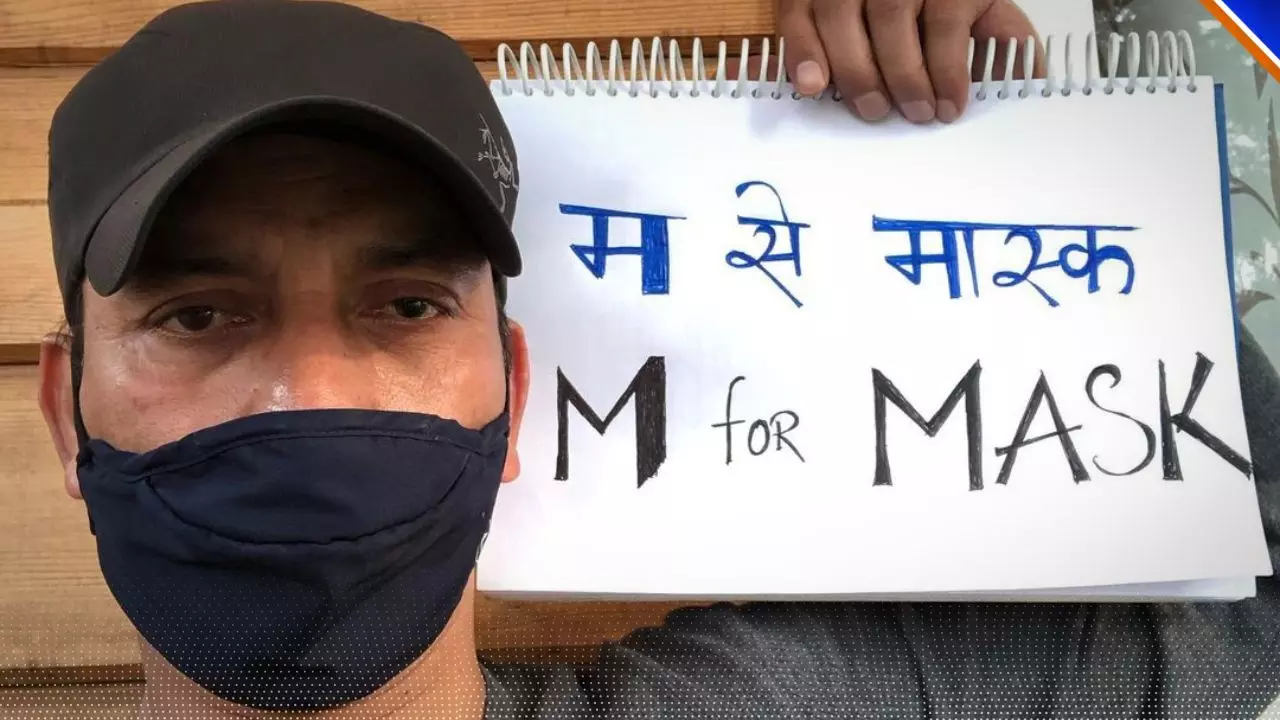 म से मास्क
M for MASK